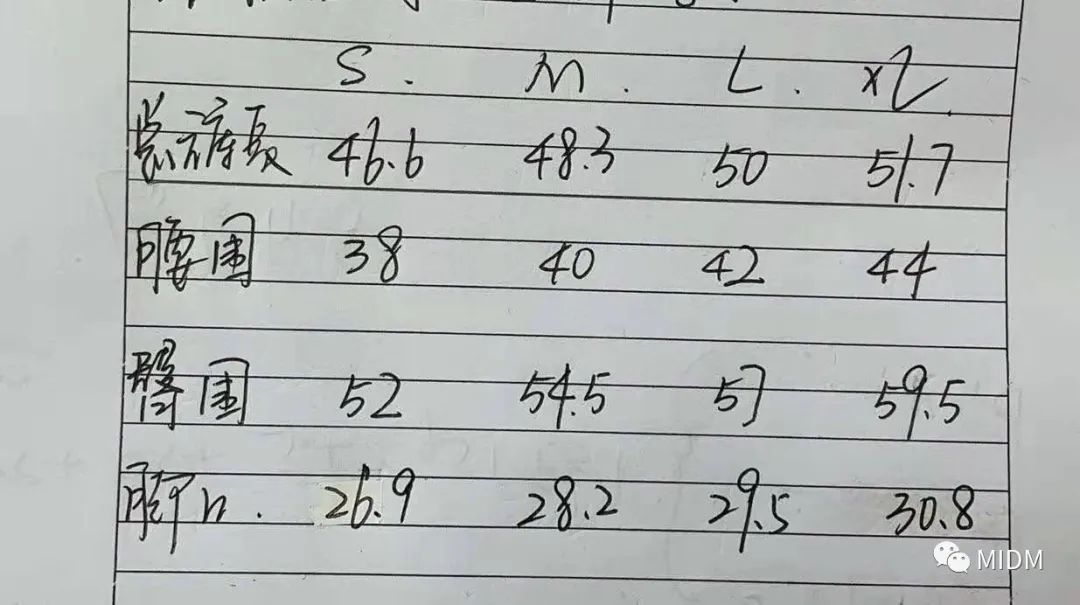 S. M. L. XL.
总裤长 46.6 48.3 50 51.7
腰围 38 40 42 44
臀围 52 54.5 57 59.5
脚口. 26.9 28.2 29.5 30.8
MIDM